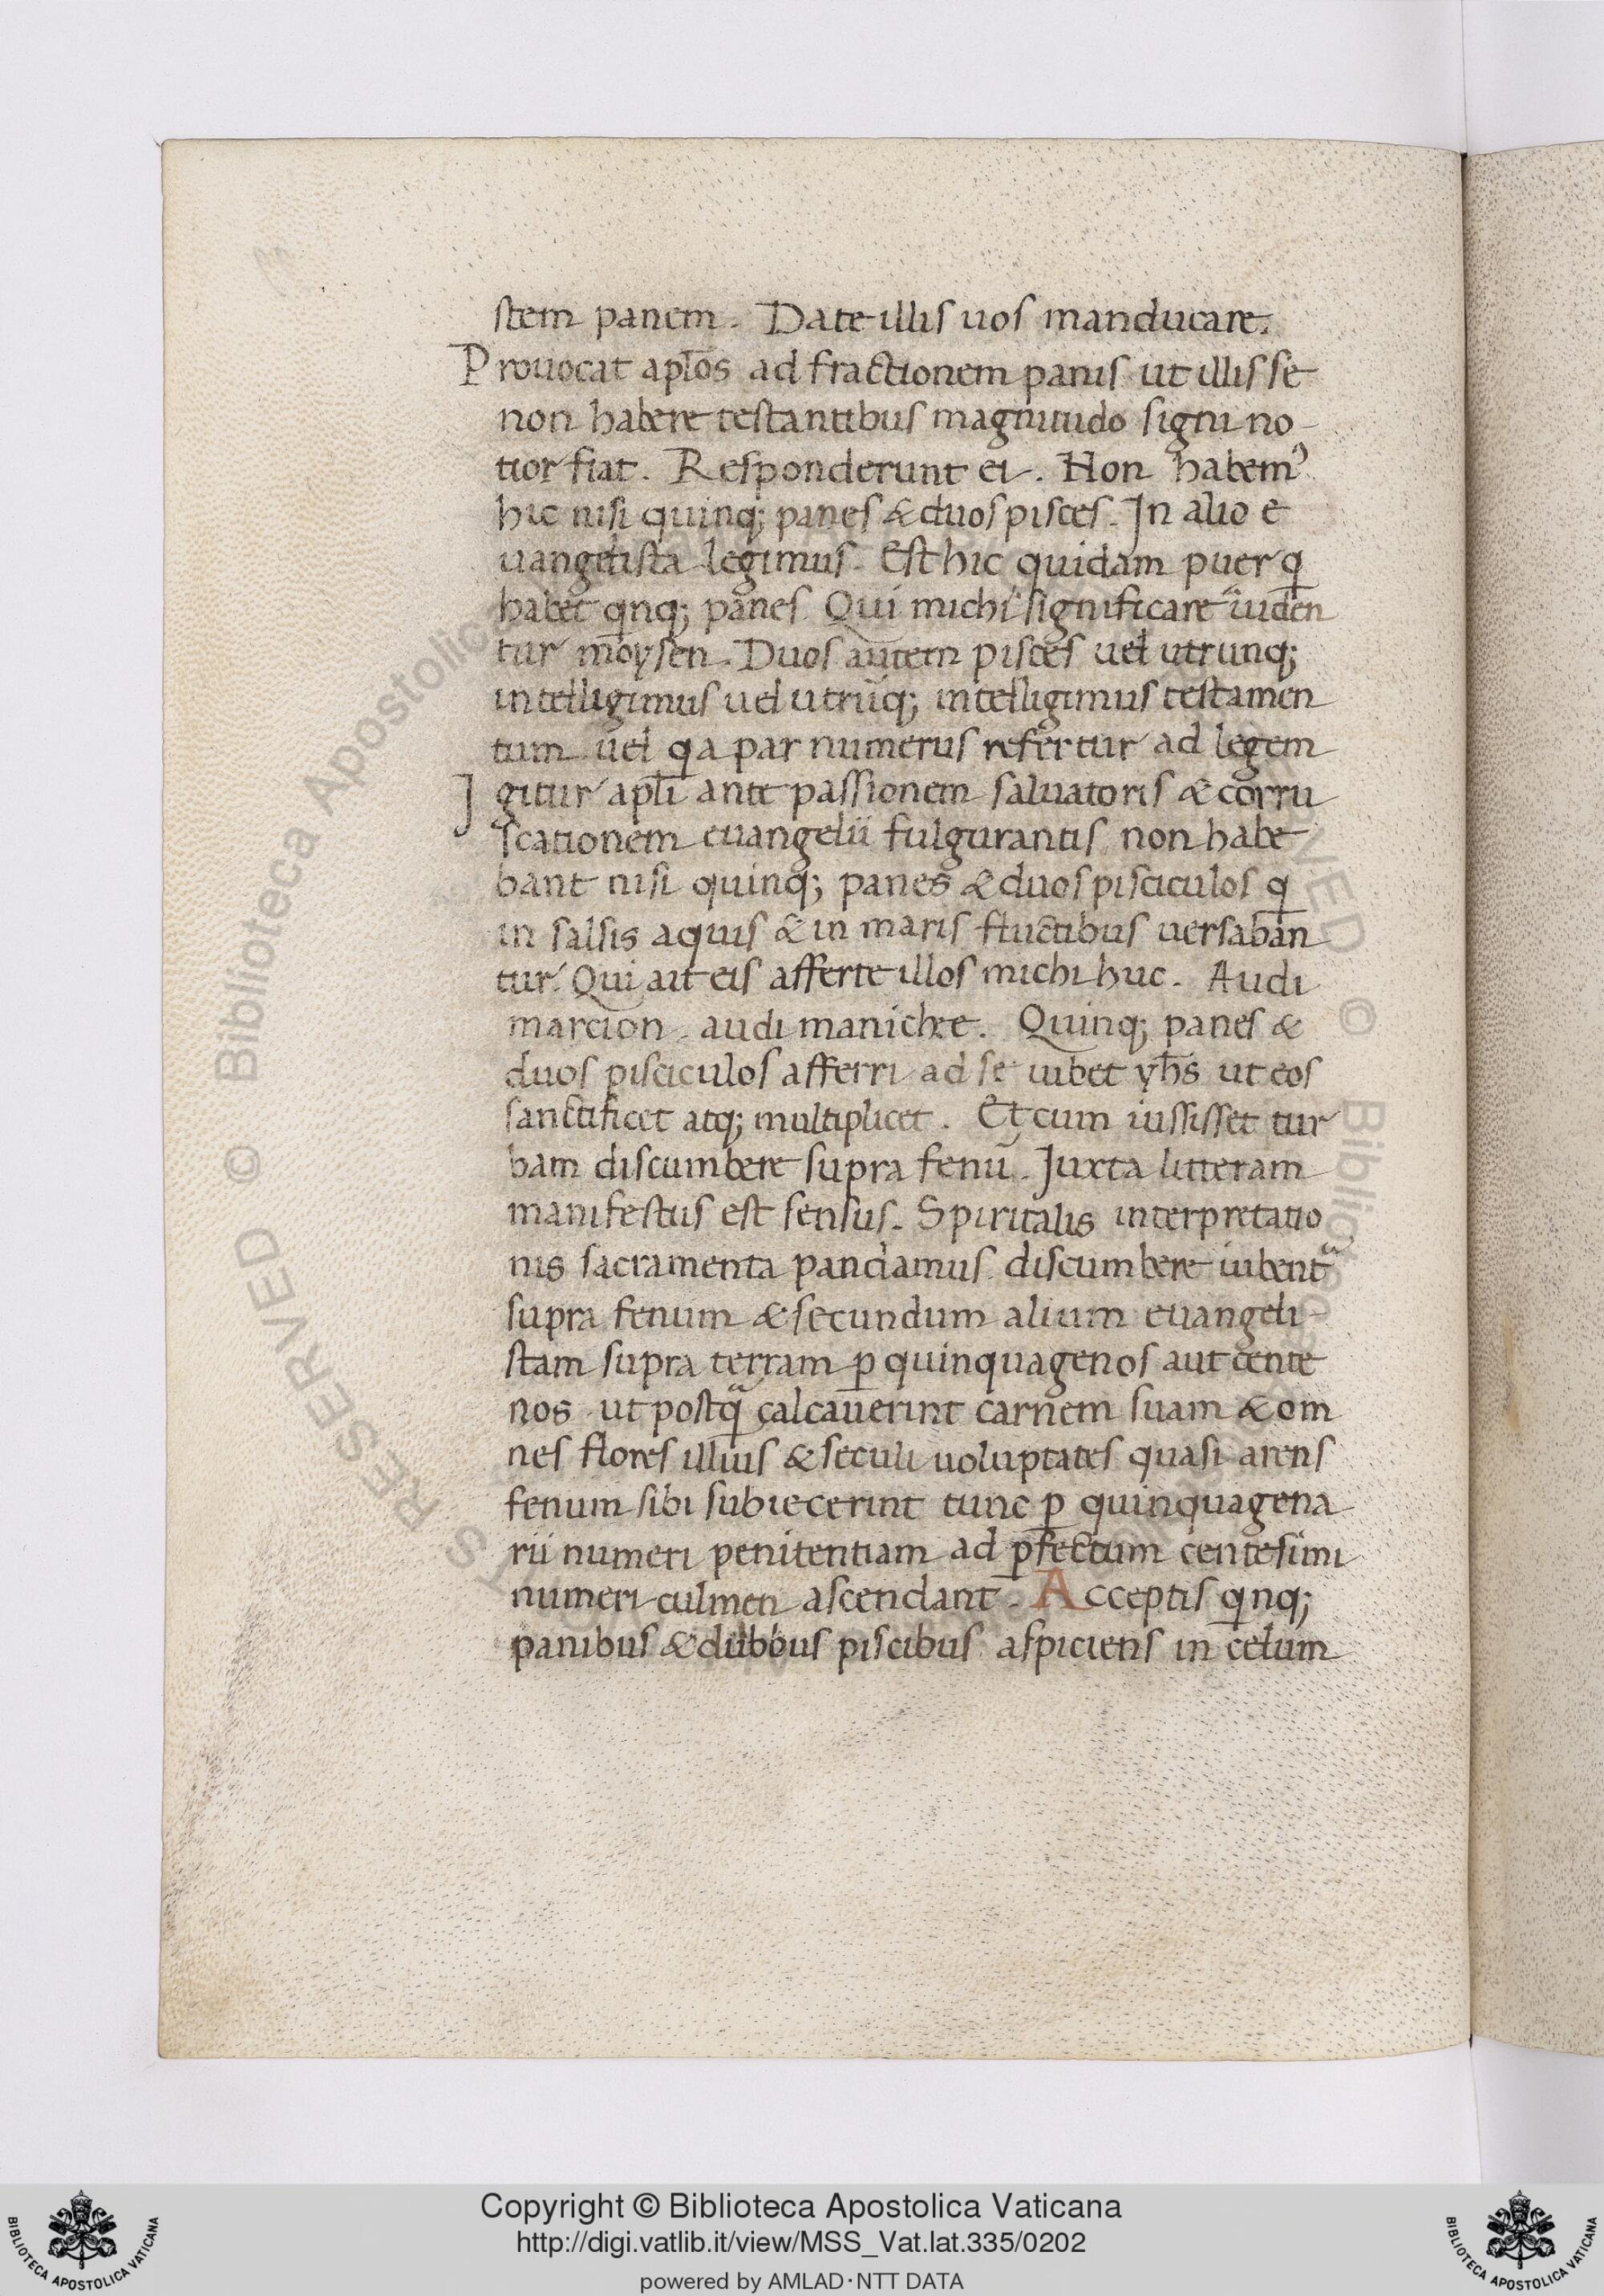 stem panem. Date illis uos manducare.
Prouocat apl̄os ad fractionem panis ut illis se
non habere testantibus magnitudo signi no-
tior fiat. Responderunt ei. Non habemꝰ
hic nisi quinq; panes & duos pisces. In alio e
uangelista legimus. Est hic quidam puer q̲
habet q̲nq; panes. Qui michi significare uiden
tur moysen. Duos autem pisces uel utrunq;
intelligimus uel utrūq; intelligimus testamen
tum uel q̲a par numerus refertur ad legem
Igitur apl̄i ante passionem saluatoris & corru
scationem euangelii fulgurantis non habe
bant nisi quinq; panes & duos pisciculos q̲
in salsis aquis & in maris fluctibus uersaban
tur. Qui ait eis afferte illos michi huc. Audi
marcion. audi manichee. Quinq; panes &
duos pisciculos afferri ad se iubet yh̄s ut eos
sanctificet atq; multiplicet. Et cum iussisset tur
bam discumbere supra fenū. Iuxta litteram
manifestus est sensus. Spiritalis interpretatio
nis sacramenta pandamus. discumbere iubent᷑
supra fenum & secundum alium euangeli-
stam supra terram ꝑ quinquagenos aut cente
nos. ut postq̃ calcauerint carnem suam & om
nes flores illius & seculi uoluptates quasi arens
fenum sibi subiecerint tunc ꝑ quinquagena
rii numeri penitentiam ad ꝑfectum centesimi
numeri culmen ascendant. Acceptis q̲nq;
panibus & duobus piscibus aspiciens in celum
Copyright © Biblioteca Apostolica Vaticana
http://digi.vatlib.it/view/MSS_Vat.lat.335/0202
powered by AMLAD·NTT DATA
BIBLIOTECA APOSTOLICA VATICANA
BIBLIOTECA APOSTOLICA VATICANA